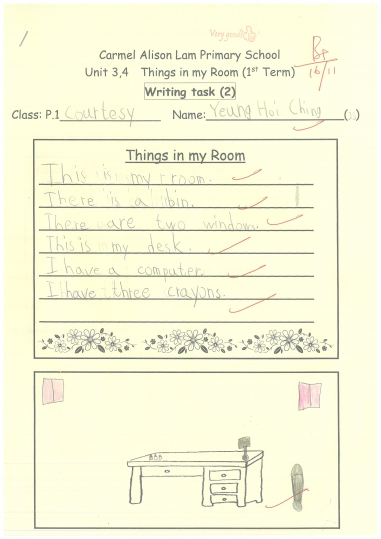 Very good!
Carmel Alison Lam Primary School
Unit 3,4 Things in my Room (1st Term)
16/11
Writing task (2)
Class: P.1 Courtesy Name: Yeung Hoi Ching ( )
Things in my Room
This is my room.
There is a bin.
There are two windows.
This is my desk.
I have a computer.
I have three crayons.